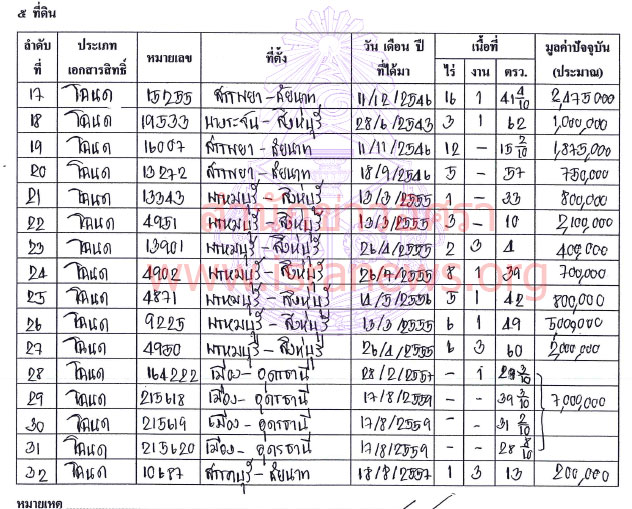 ๕ ที่ดิน
ลำดับที่ ประเภทเอกสารสิทธิ์ หมายเลข ที่ตั้ง วัน เดือน ปี ที่ได้มา เนื้อที่ มูลค่าปัจจุบัน (ประมาณ)
ไร่ งาน ตรว.
17 โฉนด 15255 สรรพยา - ชัยนาท 11/12/2546 16 1 41 4/10 2,475,000
18 โฉนด 19533 บางระจัน - สิงห์บุรี 28/6/2543 3 1 62 1,000,000
19 โฉนด 16007 สรรพยา - ชัยนาท 11/11/2546 12 - 15 2/10 1,875,000
20 โฉนด 13272 สรรพยา - ชัยนาท 18/9/2546 5 - 57 750,000
21 โฉนด 13343 พรหมบุรี - สิงห์บุรี 13/3/2555 1 - 33 800,000
22 โฉนด 4951 พรหมบุรี - สิงห์บุรี 13/3/2555 3 - 10 2,100,000
23 โฉนด 13901 พรหมบุรี - สิงห์บุรี 26/4/2555 2 3 4 400,000
24 โฉนด 4902 พรหมบุรี - สิงห์บุรี 26/7/2555 8 1 39 700,000
25 โฉนด 4871 พรหมบุรี - สิงห์บุรี 14/5/2556 5 1 42 800,000
26 โฉนด 9225 พรหมบุรี - สิงห์บุรี 13/3/2555 6 1 49 5,000,000
27 โฉนด 4950 พรหมบุรี - สิงห์บุรี 26/4/2555 6 3 60 2,000,000
28 โฉนด 164222 เมือง - อุดรธานี 28/2/2557 - 1 29 3/10
29 โฉนด 215618 เมือง - อุดรธานี 17/8/2559 - - 39 3/10 7,000,000
30 โฉนด 215619 เมือง - อุดรธานี 17/8/2559 - - 31 2/10
31 โฉนด 215620 เมือง - อุดรธานี 17/8/2559 - - 28 8/10
32 โฉนด 10687 สรรคบุรี - ชัยนาท 18/8/2557 1 3 13 200,000
หมายเหตุ
สำนักข่าวอิศรา
www.isranews.org